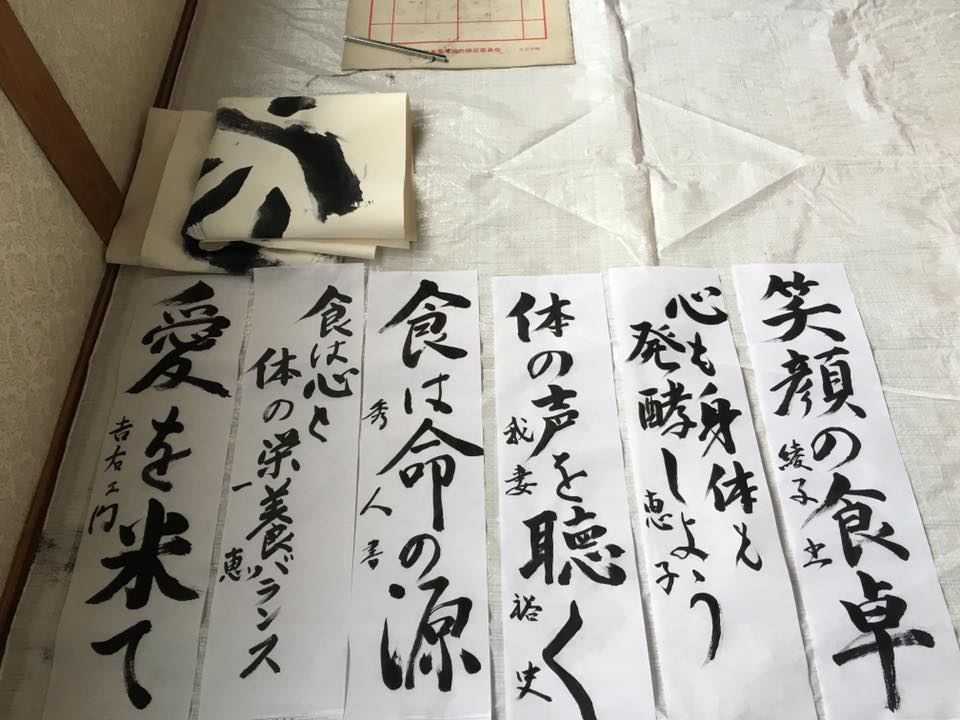 笑顔の食卓
綾子書
心も身体も
発酵しよう
恵子
体の声を聴く
我妻裕史
食は命の源
秀人書
食は心と
体の栄養バランス
一恵
愛を米て
吉右エ門